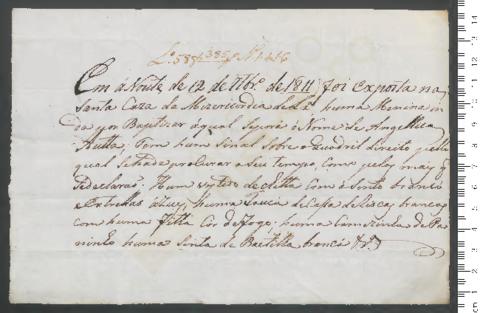 Em a Noite de 12 de 7br.º de 1811 foi exposta na
Santa Caza da Mizericordia de Lx.ª huma Menina in
da por Baptizar a qual se porá o Nome de Angellica
Tem hum Sinal sobre o quadril direito pello
qual se ha de procurar a seu tempo, Como pelos mais q
Declarao. Hum vestido de Chitta Com o fundo branco
e huma touca de Cassa de riscas brancas
com huma fitta Cor de fogo, huma Camizinha de Pa
ninho huma Sinta de Baetilha branca